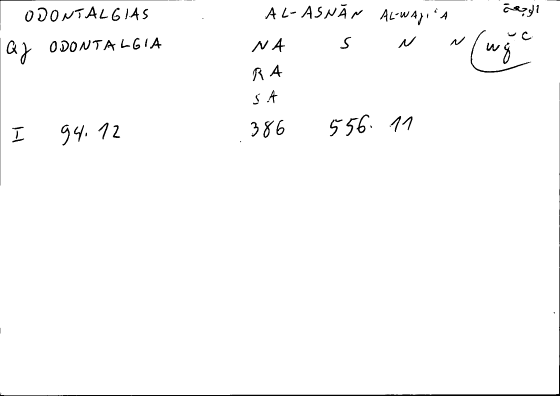 ODONTALGIAS AL-ASNĀN AL-WAJIʿA
QJ ODONTALGIA NA S N N wǧʿ
RA
SA
I 94.12 386 556.11